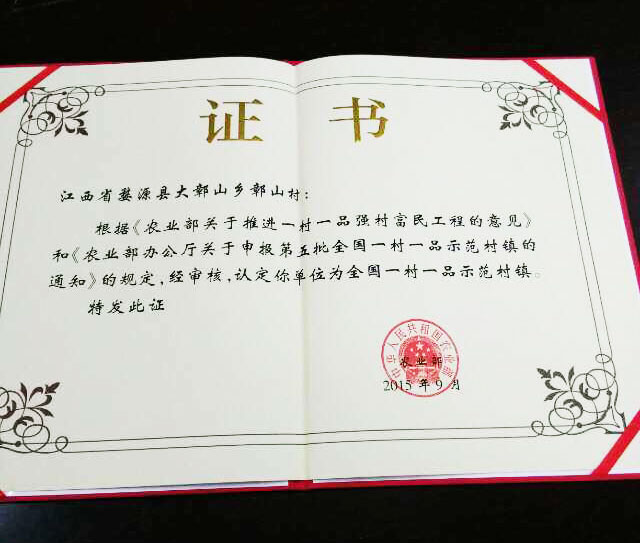 证书
江西省婺源县大鄣山乡鄣山村：
根据《农业部关于推进一村一品强村富民工程的意见》
和《农业部办公厅关于申报第五批全国一村一品示范村镇的
通知》的规定，经审核，认定你单位为全国一村一品示范村镇。
特发此证
中华人民共和国农业部
农业部
2015年9月